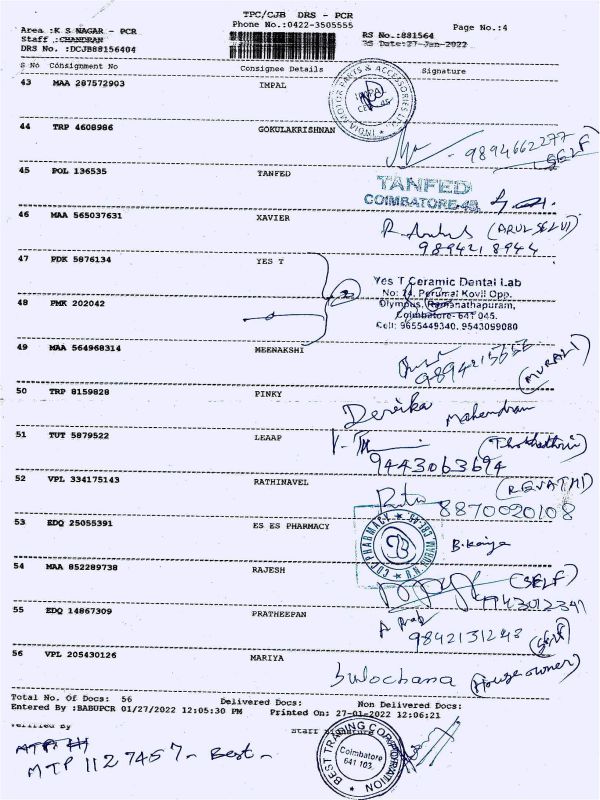 TPC/CJB DRS - PCR
Phone No.:0422-3505555
Page No.:4
Area :K S NAGAR - PCR
RS No.:881564
Staff :CHANDRAN
RS Date:27-Jan-2022
DRS No. :DCJB88156404
S No Consignment No Consignee Details Signature
43 MAA 287572903 IMPAL
INDIA MOTOR PARTS & ACCESSORIES LTD
44 TRP 4608986 GOKULAKRISHNAN
9894662277
SELF
45 POL 136535 TANFED
TANFED
COIMBATORE-45
46 MAA 565037631 XAVIER
(ARUL SELVI)
9894218944
47 PDK 5876134 YES T
Yes T Ceramic Dental Lab
No: 74, Perumal Kovil Opp.
Olympus, Ramanathapuram,
Coimbatore- 641 045.
Cell: 9655449340, 9543099080
48 PMK 202042
2
49 MAA 564968314 MEENAKSHI
(MURALI)
50 TRP 8159828 PINKY
Devika Mahendran
51 TUT 5879522 LEAAP
9443063694
52 VPL 334175143 RATHINAVEL
(REVATHI)
8870020108
53 EDQ 25055391 ES ES PHARMACY
PHARMACY
54 MAA 852289738 RAJESH
(SELF)
9443012341
55 EDQ 14867309 PRATHEEPAN
9842131248 (self)
56 VPL 205430126 MARIYA
Sulochana (House owner)
Total No. Of Docs: 56 Delivered Docs: Non Delivered Docs:
Entered By :BABUPCR 01/27/2022 12:05:30 PM Printed On: 27-01-2022 12:06:21
Verified By Staff Signature
BEST TRADING CORPORATION
Coimbatore
641 103.
MTP 1127457 - Best -